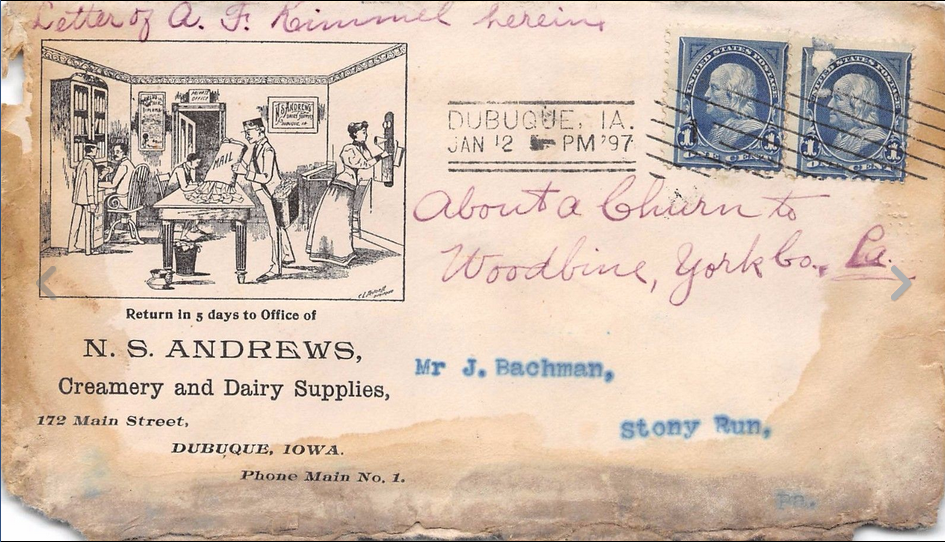 Letter of A. F. Kimmel herein
PRIVATE
OFFICE
N.S. ANDREWS
DAIRY SUPPLIES
DUBUQUE, IA.
MAIL
DUBUQUE, IA.
JAN 12 5-PM '97
UNITED STATES POSTAGE
1 1
ONE CENT
UNITED STATES POSTAGE
1 1
ONE CENT
About a Churn to
Woodbine, York Co., Pa.
Return in 5 days to Office of
N. S. ANDREWS,
Creamery and Dairy Supplies,
172 Main Street,
DUBUQUE, IOWA.
Phone Main No. 1.
Mr J. Bachman,
stony Run,
pa.